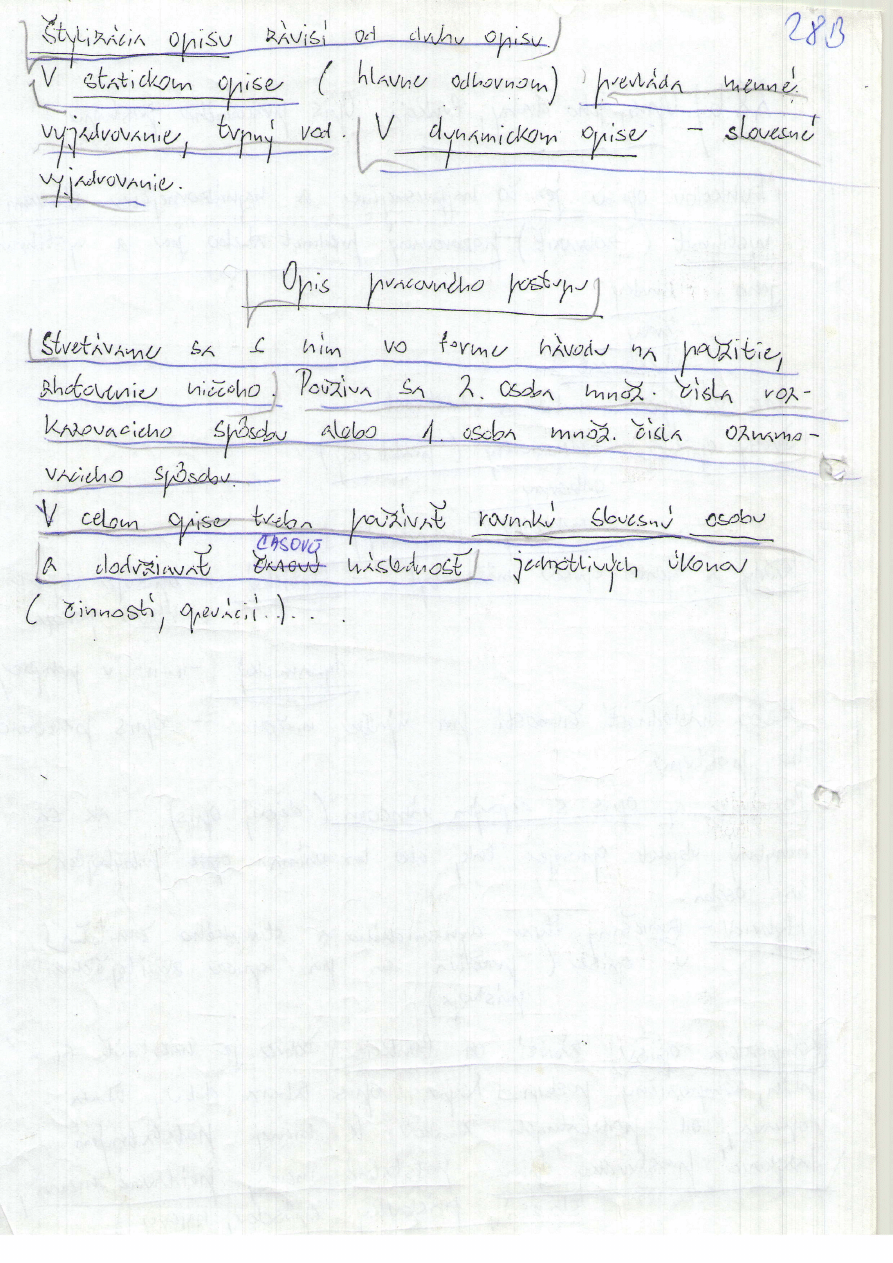 28B
Štylizácia opisu závisí od druhu opisu
V statickom opise ( hlavne odbornom) prevláda menné
vyjadrovanie, trpný rod. V dynamickom opise - slovesné
vyjadrovanie.
Opis pracovného postupu
Stretávame sa s ním vo forme návodu na použitie,
zhotovenie niečoho. Používa sa 2. osoba množ. čísla roz-
kazovacieho spôsobu alebo 1. osoba množ. čísla oznamo-
vacieho spôsobu.
V celom opise treba používať rovnakú slovesnú osobu
a dodržiavať ČASOVÚ následnosť jednotlivých úkonov
( činností, operácií..)...